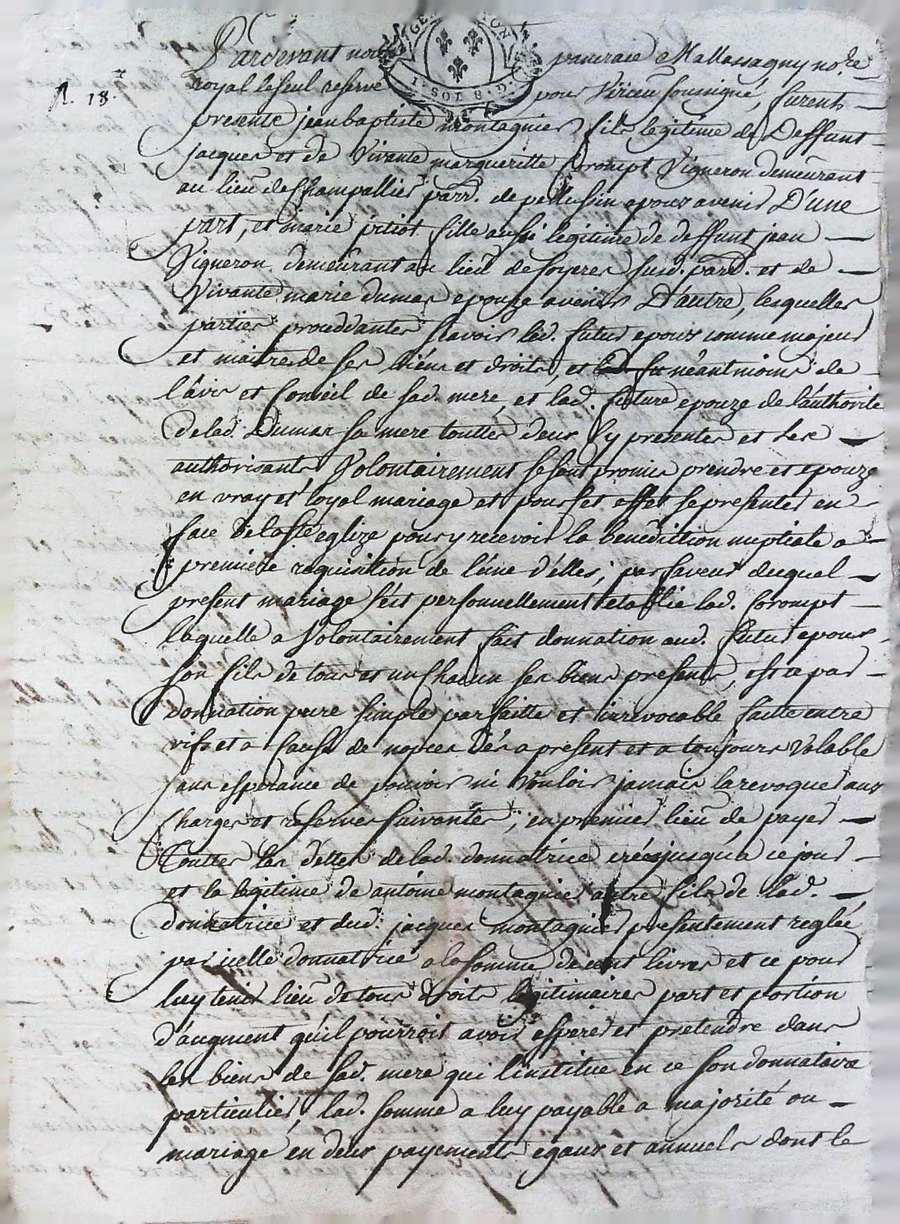 Pardevant nous pancraie Mallassagny no.re
royal le seul reservé pour Virieu soussigné, furent
n. 18.
presents jean baptiste montagnier, fils legitime de deffunt
jacques et de Vivante margueritte Corompt Vigneron demeurant
au lieu de Champallier parr. de pellussin epoux avenir D'une
part, et marie pitiot fille aussi legitime de deffunt jean
Vigneron demeurant au lieu de soyeres susd. parr. et de
Vivante marie dumas epouze avenir D'autre, lesquelles
parties proceddantes scavoir led. futur epoux comme majeur
et maitre de ses biens et droits, et néantmoins de
l'avis et Conseil de sad. mere, et lad. future epouze de l'authorité
de lad. Dumas sa mere touttes deux y presentes et les
authorisants Volontairement se sont promis prendre et epouze
en vray et loyal mariage et pour cet effet se presenter en
face de la ste eglize pour y recevoir la benediction nuptiale a
premiere requisition de l'une d'elles; par faveur duquel
present mariage s'est personnellement etablie lad. Corompt
laquelle a Volontairement fait donnation aud. futur epoux
son fils de tous et un chacun ses biens presents, est a par
donnation pure simple parfaitte et irrevocable faitte entre
vifs et a cause de nopces dès a present et a toujours Valable
sans esperance de pouvoir ni Vouloir jamais la revoquer aux
Charges et reserves suivantes; en premier lieu de payer
touttes les dettes de lad. donnatrice créés jusqu'a ce jour
et la legitime de antoine montagnier autre fils de lad.
donnatrice et dud. jacques montagnier presentement reglée
par icelle donnatrice a la somme de cent livres et ce pour
luy tenir lieu de tous droits legitimaires part et portion
d'augment qu'il pourroit avoir esperer et pretendre dans
les biens de sad. mere qui l'institue en ce son donnataire
particulier, lad. somme a luy payable a majorité ou
mariage en deux payements egaux et annuels dont le